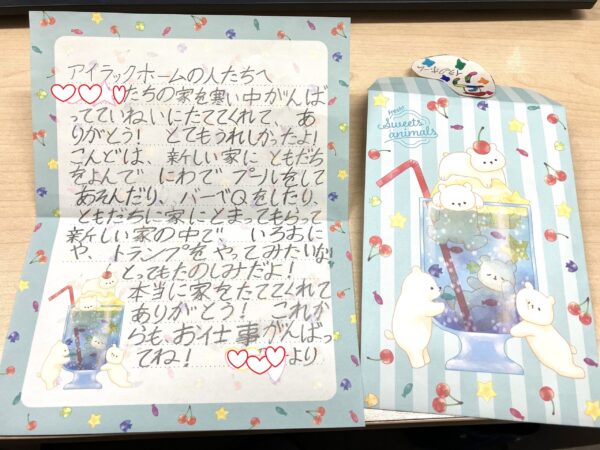 アイラックホームの人たちへ
たちの家を寒い中がんば
ってていねいにたててくれて、あ
りがとう! とてもうれしかったよ!
こんどは、新しい家にともだち
をよんでにわでプールをして
あそんだり、バーべQをしたり、
ともだちに家にとまってもらって
新しい家の中で いろおに
や、トランプをやってみたいな!
とってもたのしみだよ!
本当に家をたててくれて
ありがとう! これか
らも、お仕事がんばっ
てね! より
sweets
animals